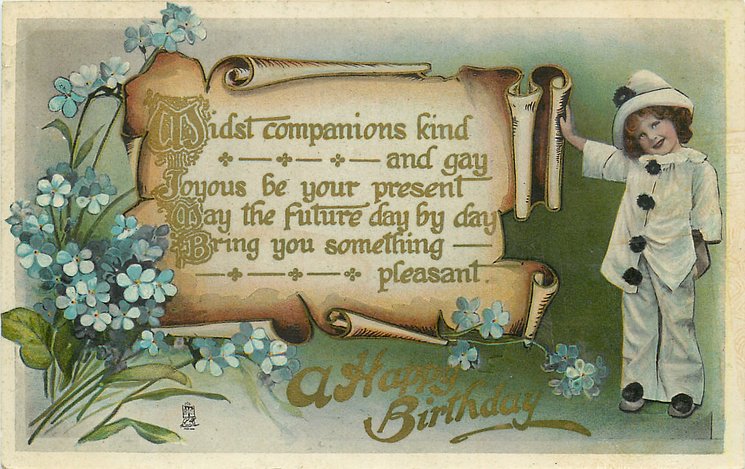 Midst companions kind
and gay
Joyous be your present
May the future day by day
Bring you something
pleasant.
A Happy
Birthday